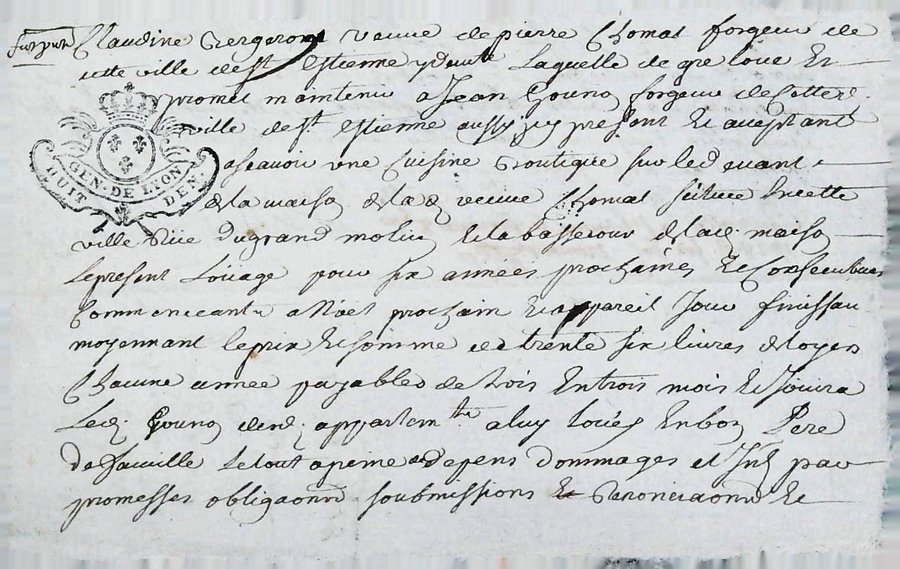 Claudine vefve de pierre Thomas forgeur de
cette ville de St Estienne Laquelle de gre loüe Et
promet maintenir a Jean forgeur de cette d.
ville de St Estienne aussy icy present Et acceptant
ascavoir une Cuisine Boutique sur le devant
de la maison de lad vefve Thomas scituee En cette
ville Rüe du grand molin Et la basse cour de lad. maison
Le present Loüage pour six années prochaines Et Consecutives
Commencant a Noel prochain Et a pareil Jour finissan
moyennant le prix Et somme de trente six livres de loyer
Chacune année payables de trois En trois mois Et Jouira
Led. desd. appartem.ts a luy Loüés En bon Pere
de famille Le tout a peine de depens dommages et Int par
promesses obligaons soubmissions Renonciaons Et
GEN. DE LYON
HUIT DEN.